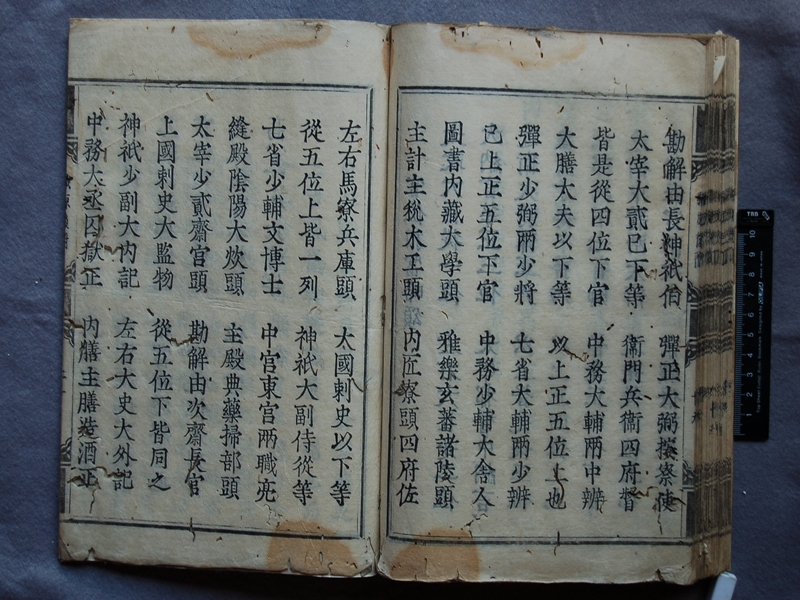 勘解由長神祇伯　彈正大弼按察使
太宰大貳已下等　衛門兵衛四府督
皆是從四位下官　中務大輔兩中辨
大膳大夫以下等　以上正五位上也
彈正少弼兩少將　七省大輔兩少辨
已上正五位下官　中務少輔大舍人
圖書内藏大學頭　雅樂玄蕃諸陵頭
主計主稅木工頭　内匠寮頭四府佐
左右馬寮兵庫頭　太國刺史以下等
從五位上皆一列　神祇大副侍從等
七省少輔文博士　中宮東宮兩職亮
縫殿陰陽大炊頭　主殿典藥掃部頭
太宰少貳齋宮頭　勘解由次齋長官
上國刺史大監物　從五位下皆同之
神祇少副大内記　左右大史大外記
中務大丞囚獄正　内膳主膳造酒正